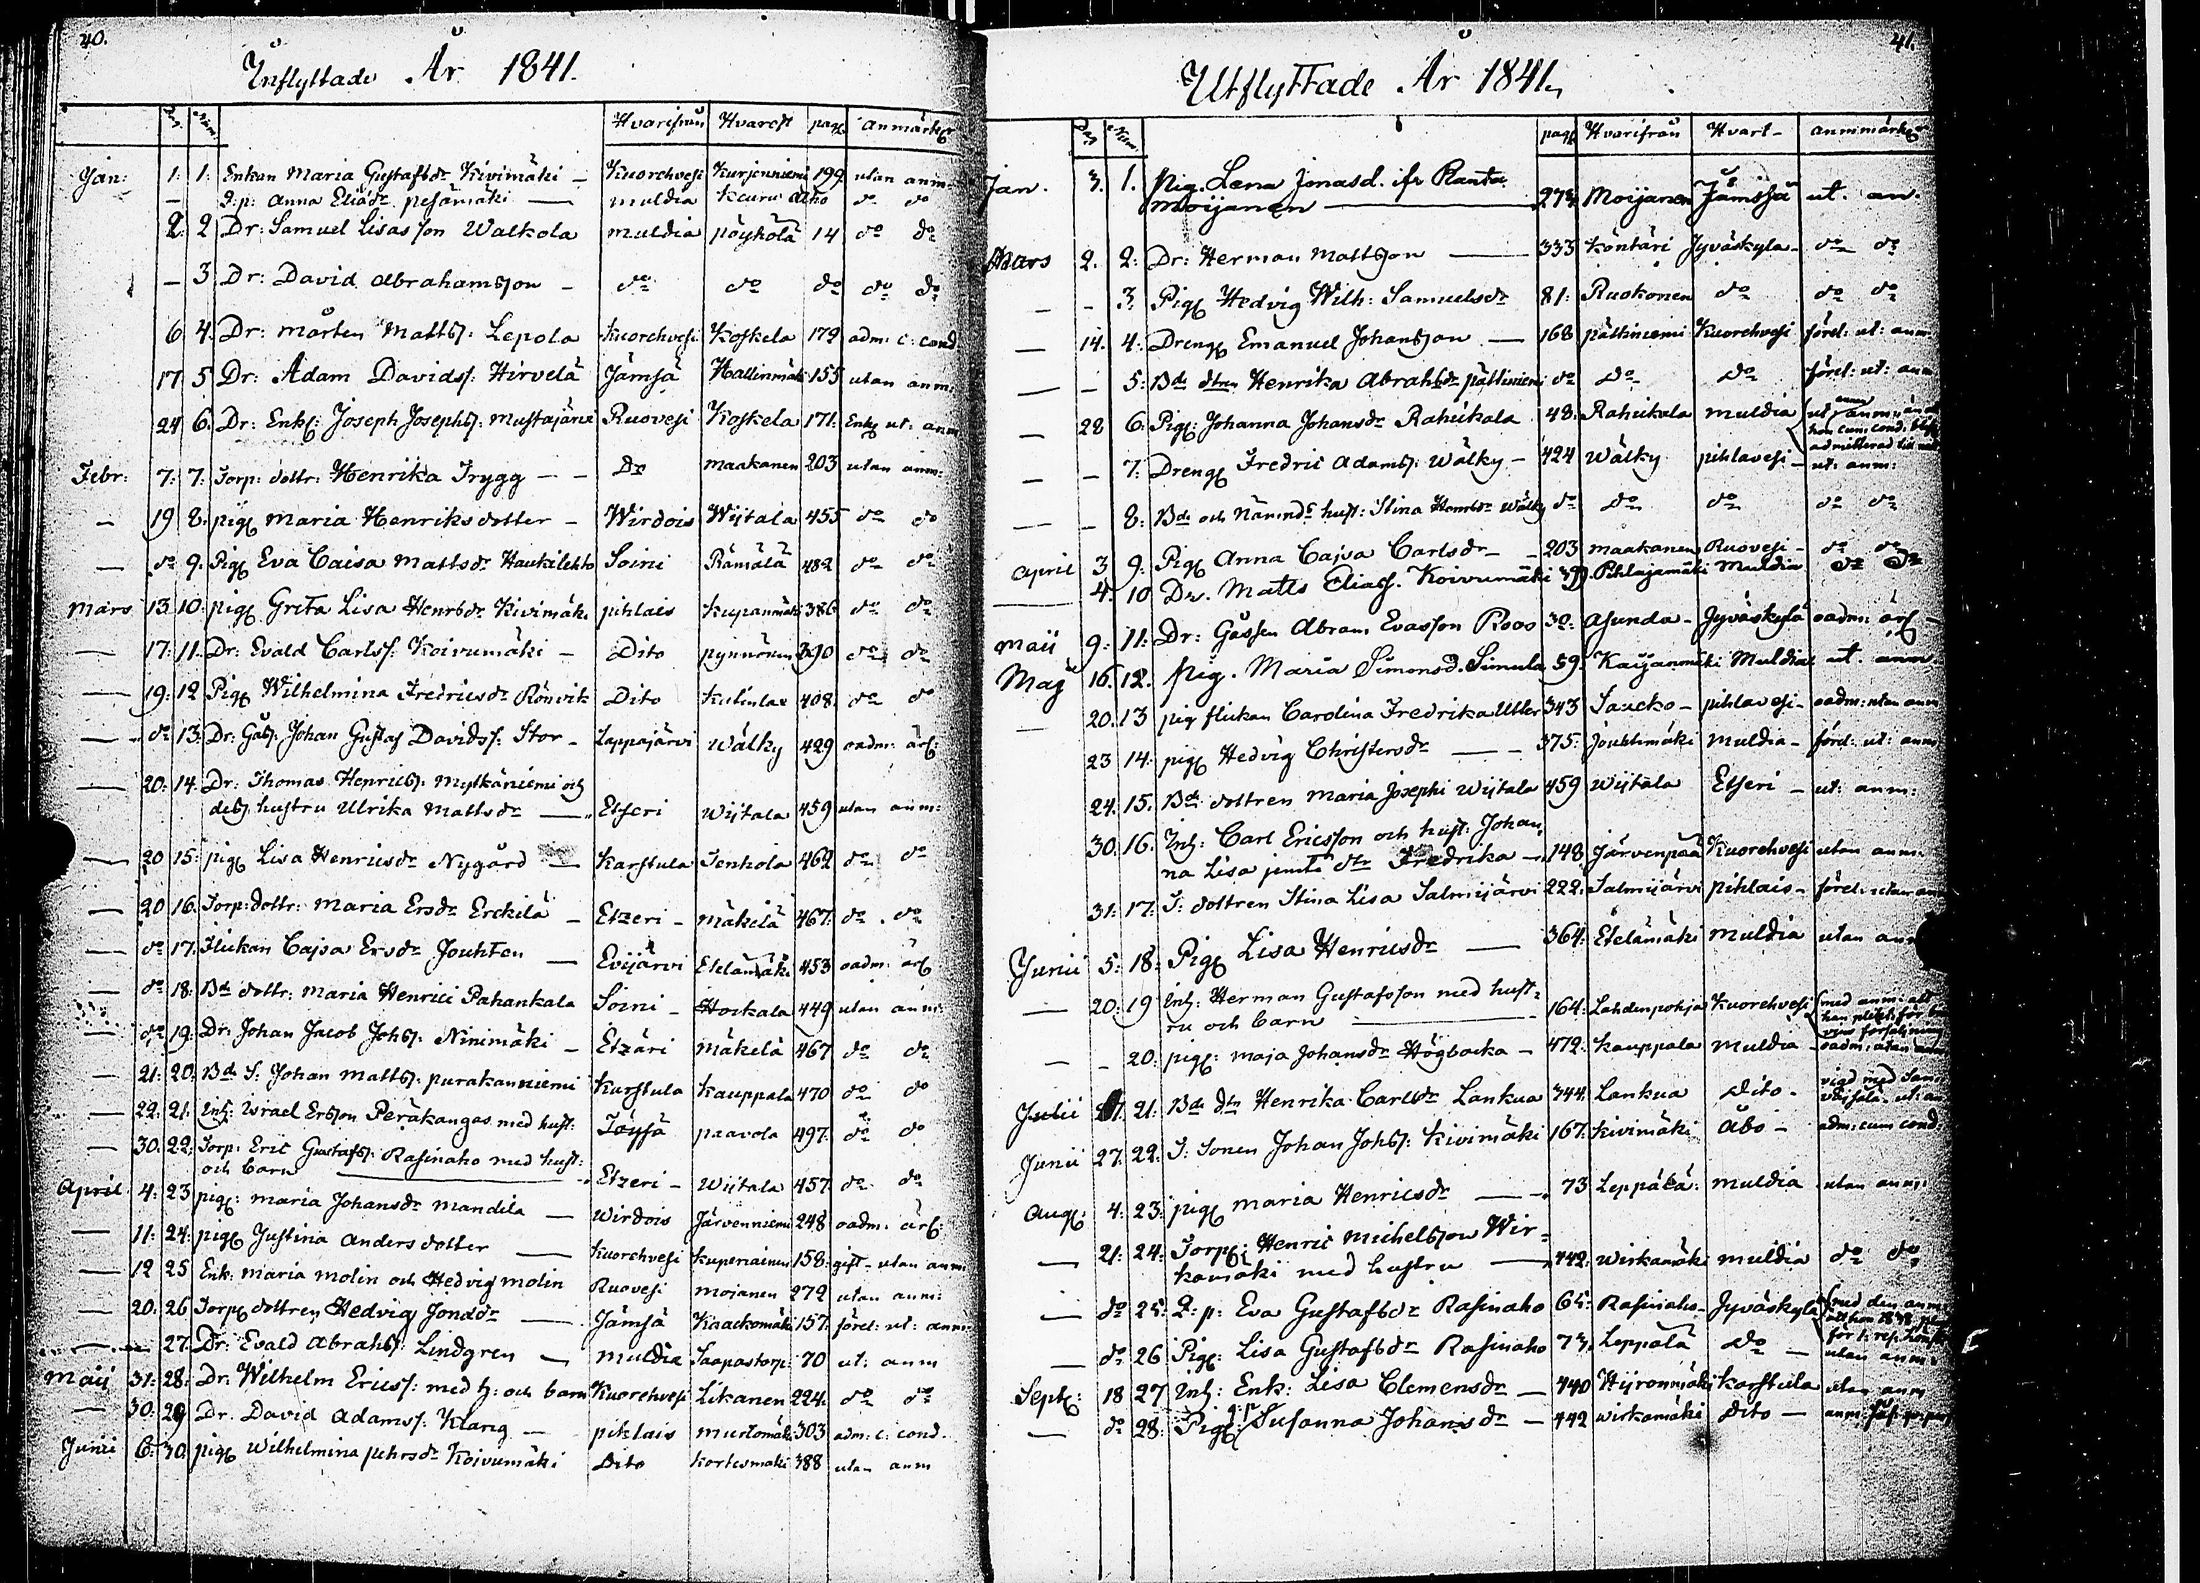 40.
Inflyttade År 1841.
Dag. Num. Hvarifrån Hvarest pag. anmärkn
Jan: 1: 1: Enkan Maria Gustafsdr Kivimäki – Kuorehvesi Kurjenniemi 199 utan anm:
– D:p: Anna Eliædr pesämäki — muldia Keuru dito do do
2: 2 Dr: Samuel Lisasson Walkola muldia pöyhölä 14 do do
– 3 Dr: David Abrahamsson – do do do do do
6 4. Dr: Mårten Matts: Lepola Kuorehvesi Koskela 172 adm: c: cond.
17 5 Dr: Adam Davidss: Hirvelä Jämsä Hallinmäki 155 utan anm:
24 6. Dr: Enkl: Joseph Josephs: Mustajärvi Ruovesi Koskela 171: Enkl ut: anm
Febr: 7: 7: Torp: dottr: Henrika Trygg – – Do maakanen 203 utan anm:
– 19 8. pig Maria Henriksdotter – Wirdois Wijtala 455 do do
— do 9. Pig Eva Caisa Mattsdr Haukilehto Soini Rämälä 482 do do
Mars 13. 10: pig Greta Lisa Henrsdr Kivimäki pihlais Kupanmäki 386 do do
— 17: 11. Dr: Evald Carlss: Koivumäki – Dito pynnönen 390 do do
— 19: 12 Pig Wilhelmina Fredricsdr Rönvik Dito Kulinlax 408. do do
— do 13. Dr: Gåss: Johan Gustaf Davidss: Stor – Lappajärvi Wälky 429 oadm: ärs:
— 20: 14. Dr: Thomas Henrics: Mytkäniemi och
dess hustru Ulrika Mattsdr — Etseri Wijtala 459 utan anm:
— 20 15: pig Lisa Henricsdr Nygård — Karstula Tenhola 462 do do
— 20 16. Torp: dottr: Maria Ersdr Erckilä – Etzeri – Mäkilä 467. do do
— do 17. Flickan Cajsa Ersdr Jouhten — Evijärvi Etelämäki 453 oadm: ärs:
— do 18. Bd dottr: Maria Henrici Pahankala Soini – Hockala 449 utan anm:
— do 19: Dr: Johan Jacob Johs: Ninimäki – Etzäri Mäkelä 467 do do
— 21: 20: Bd S: Johan Matts: purakanniemi Karstula Kauppala 470 do do
— 22: 21. Inh: Israel Ersson Peräkangas med hust: Töysä paavola 497. do do
— 30: 22: Torp: Eric Gustafs: Rasinaho med hust:
och barn — Etzeri – Wijtala 457. do do
April 4: 23 pig: Maria Johansdr Mandila — Wirdois Järvenniemi 248 oadm: ärs:
— 11: 24: pig Justina Andersdotter — Kuorehvesi Kuperiainen 158: gift – utan anm
— 12 25 Enk: Maria Molin och Hedvig Molin Ruovesi moianen 272 utan anm:
— 20: 26 Torp dottren Hedvig Jondr — Jämsä Kaackomäki 157: förel: ut: anm:
— 27. Dr: Evald Abrahs: Lindgren — Muldia Saapastorp: 70 ut: anm
Maij 31: 28: Dr: Wilhelm Ericss: med h: och barn Kuorehvesi Likanen 224. do do
— 30: 29 Dr. David Adamss: Klang — pihlais murtomäki 303 adm: c: cond.
Junii 6: 30. pig Wilhelmina pehrsdr Koivumäki Dito Kortesmäki 388 utan anm
41.
Utflyttade År 1841.
Dag Num. pag Hvarifrån Hvart – anmärkn
Jan. 3. 1. Pig. Lena Jonasd. ifr Ranta
Moijanen — 273. Moijanen Jämsjä ut. an.
Mars 2. 2: Dr: Herman Mattsson — 333 Köntäri Jyväskyla – do do
– – 3. Pig Hedvig Wilh: Samuelsdr 81: Ruokonen do do do
— 14. 4: Dreng Emanuel Johansson — 168 pättiniemi Kuorehvesi förel: ut: anm
— – 5: Bd dtren Henrika Abrahsdr pättiniemi do do do förel: ut: anm
— 28 6: Pig: Johanna Johansdr Rahikala 48: Rahikala Muldia ut: anm:
hon cum: cond: blif
admitterad till natt
– – 7: Dreng Fredric Adams: Wälky – 424 Wälky pihlavesi – ut: anm:
– – 8: Bd och Nämnds hust: Stina Henrsdr Wälky do do do do do
April 3 9: Pig Anna Cajsa Carlsdr – – 203 maakanen Ruovesi – do do
— 4. 10 Dr. Matts Eliass. Koivumäki 39. Pihlajamäki Muldia do do
Maii 9: 11: Dr: Gåssen Abram Evasson Roos 30: Asunda – Jyväskylä oadm: ärs –
Maj 16. 12. Pig. Maria Simonsd. Simula 59. Kaijanmäki Muldia ut. anm.
— 20: 13 pig flickan Carolina Fredrika Utter 343 Saucko – pihlavesi – oadm: utan anm
23 14: pig Hedvig Christersdr — – 375: Jouhtimäki Muldia – förel: ut: anm
24. 15. Bd dottren Maria Josephi Wijtala 459 Wijtala Etseri – ut: anm:
30: 16. Inh: Carl Ericsson och hust: Johan,
na Lisa jemte dtr Fredrika –. 148 Järvenpää Kuorehvesi utan anm.
31: 17: T: dottren Stina Lisa Salmijärvi 222: Salmijärvi pihlais – förel: utan an
Junii 5: 18: Pig Lisa Henricsdr — 364: Etelämäki Muldia utan ann
— 20: 19 Inh: Herman Gustafsson med hust=
ru och barn — 164: Lahdenpohja Kuorehvesi med anm: att
han plikt: för
– – 20: pig: Maja Johansdr Högbacka – 472: Kauppala Muldia – oadm: utan anm
Julii 21: Bd dtr Henrika Carlsdr Lankua 344. Lankua Dito – vigd med
ut: an
Junii 27. 22: T: Sonen Johan Johs: Kivimäki 167: Kivimäki Åbo – adm: cum cond.
Aug: 4: 23: pig Maria Henricsdr — 73 Leppälä: Muldia utan anm:
— 21: 24: Torp: Henric Michelsson Wir=
kamäki med hustru — 442: Wirkamäki Muldia do do
— do 25: D: p: Eva Gustafsdr Rasinaho 65: Rasinaho – Jyväskyla med den anm
att hon 1838
för 1: resan
— do 26 Pig: Lisa Gustafsdr Rasinaho 73. Leppälä do – utan anm:
Sept: 18 27 Inh: Enk: Lisa Clemensdr — 440 Hijronmäki Karstula utan anm
— do 28: Pig: Susanna Johansdr – 442 Wirkamäki Dito –